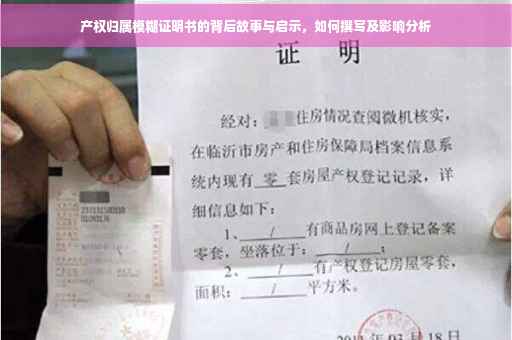 产权归属模糊证明书的背后故事与启示，如何撰写及影响分析
证 明
经对：住房情况查阅微机核实，
在临沂市房产和住房保障局档案信息系
统内现有 零 套房屋产权登记记录，详
细信息如下：
1、 / 有商品房网上登记备案
零套，坐落位于： / ；
2、 / 有产权登记房屋零套，
面积： / 平方米。
03月18日